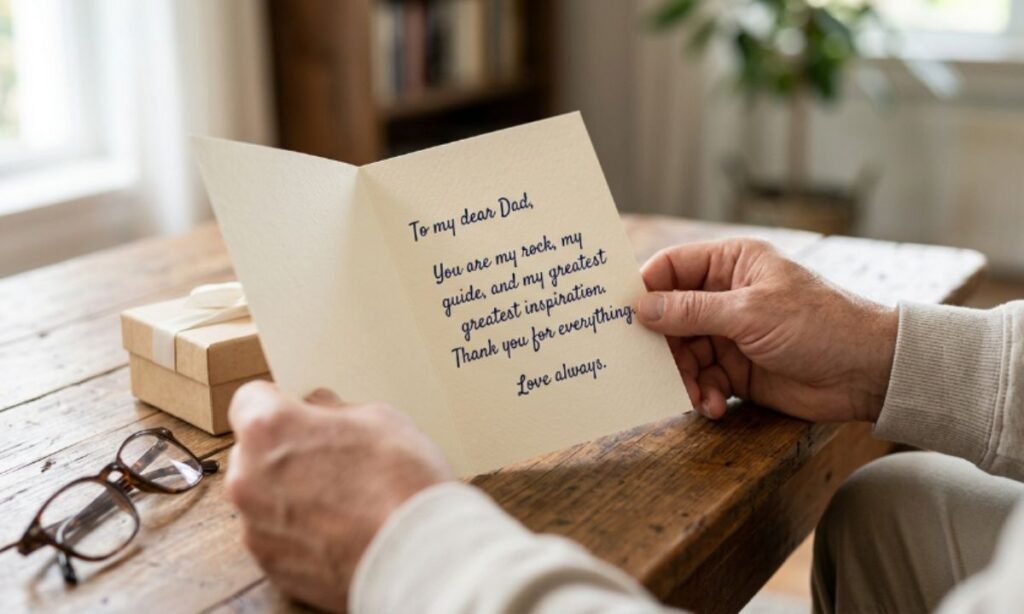 To my dear Dad,
You are my rock, my
guide, and my greatest
greatest inspiration.
Thank you for everything.
Love always.